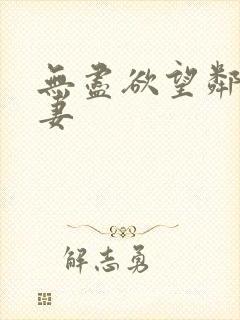 無盡欲望鄰
妻
解志勇